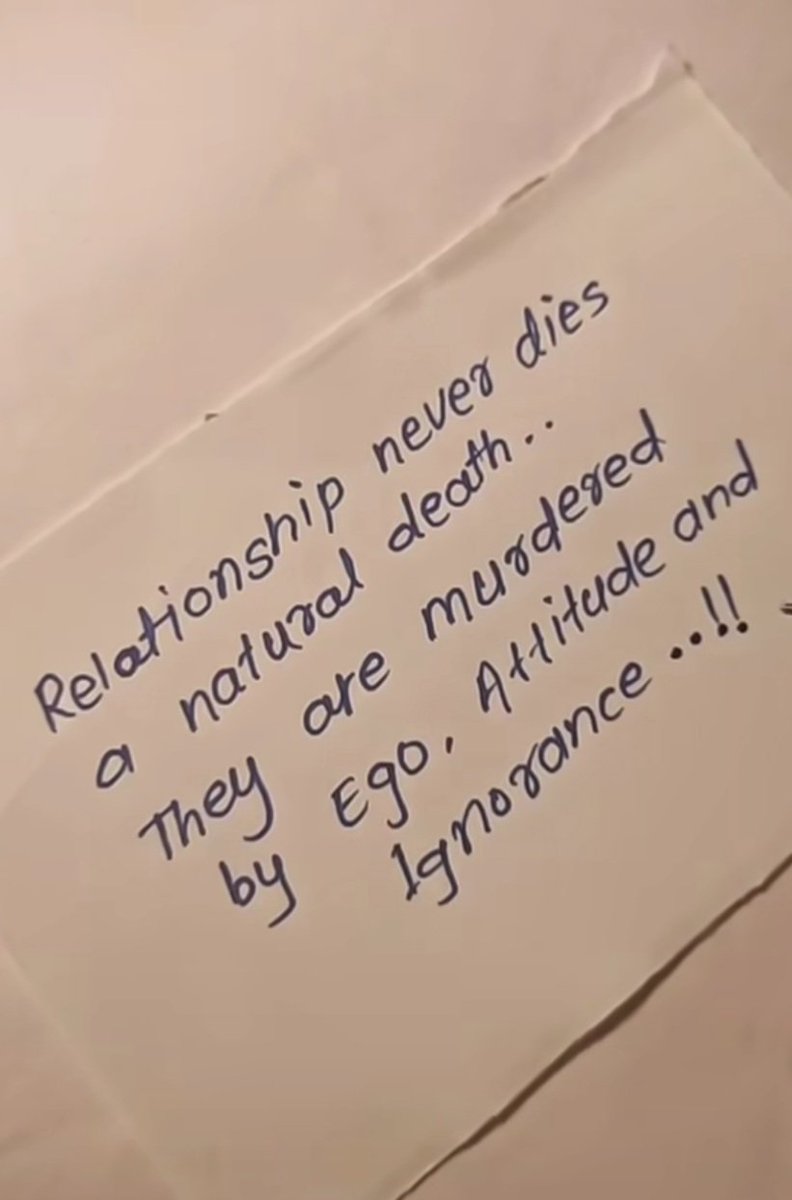 Relationship never dies
a natural death..
They are murdered
by Ego, Attitude and
Ignorance..!!